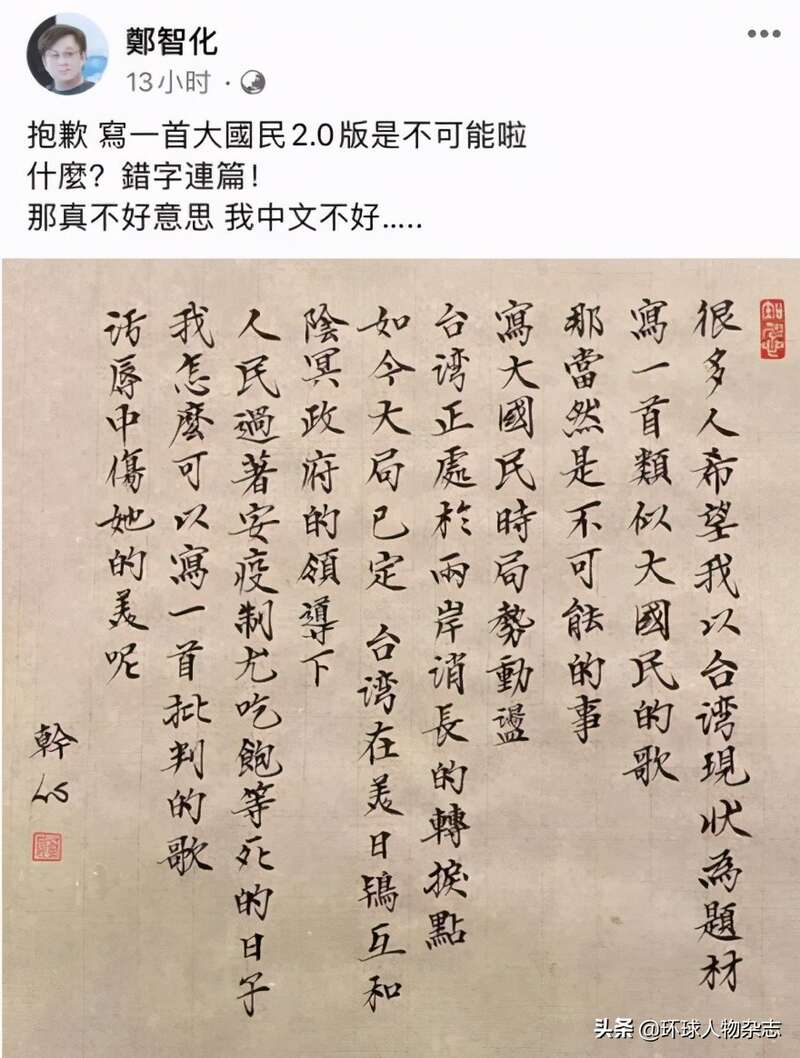 鄭智化
13小时
抱歉 寫一首大國民2.0版是不可能啦
什麼？錯字連篇！
那真不好意思 我中文不好.....
很多人希望我以台湾現狀為題材
寫一首類似大國民的歌
那當然是不可能的事
寫大國民時局勢動盪
台湾正處於兩岸消長的轉捩點
如今大局已定 台湾在美日鴇互和
陰冥政府的領導下
人民過著安疫制尤吃飽等死的日子
我怎麼可以寫一首批判的歌
污辱中傷她的美呢
幹
头条 @环球人物杂志